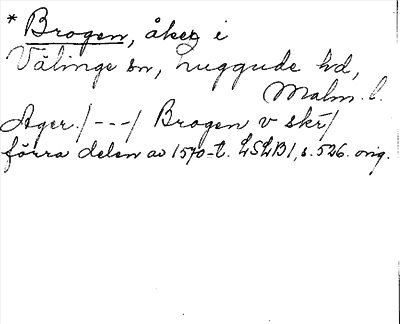 * Brogen, åker i
Välinge sn, Luggude hd,
Malm. l.
Ager. /---/ Brogen v skr/
förra delen av 1570-t. LSLB1, s. 526. orig.